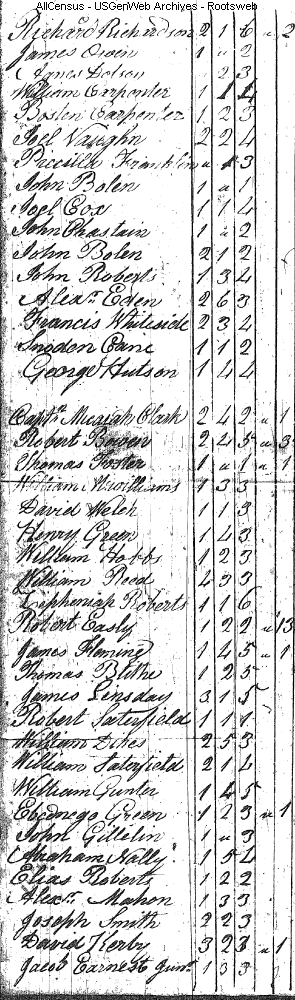 AllCensus - USGenWeb Archives - Rootsweb
Richard Richardson 2 1 6 " 2
James Owen 1 " 2
Dobson " 2 3
William Carpenter 1 1 4
Bosten Carpenter 1 2 3
Joel Vaughn 2 2 4
Franklin " 1 3
John Bolen 1 " 1
Joel Cox 1 1 4
John Chastain 1 " 2
John Bolen 2 1 2
John Roberts 1 3 4
Alexr Eden 2 6 3
Francis Whiteside 2 3 4
Cane 1 1 2
George Hutson 1 4 4
Captn Clark 2 4 2 " 1
Robert Bowen 2 4 5 " 3
Thomas Foster 1 " 1 " 1
William 1 3 3
David Welch 1 1 3
Henry Green 1 4 3
William Hobbs 1 2 3
William Reed 4 3 3
Zepheniah Roberts 1 1 6
Robert Easly 1 2 2 " 13
James Fleming 1 4 5 " 1
Thomas Blithe 1 2 5
James Linsday 3 1 5
Robert Saterfield 1 1 1
William Dikes 2 5 3
William Saterfield 2 1 4
William Gunter 1 4 5
Ebednego Green 1 2 3 " 1
John Gillelin 1 " 3
Abraham Nally 1 5 4
Elias Roberts 1 2 2
Alexr Mahon 1 3 3
Joseph Smith 2 2 3
David Kerby 3 2 3 " 1
Jacob Earnest 1 3 3